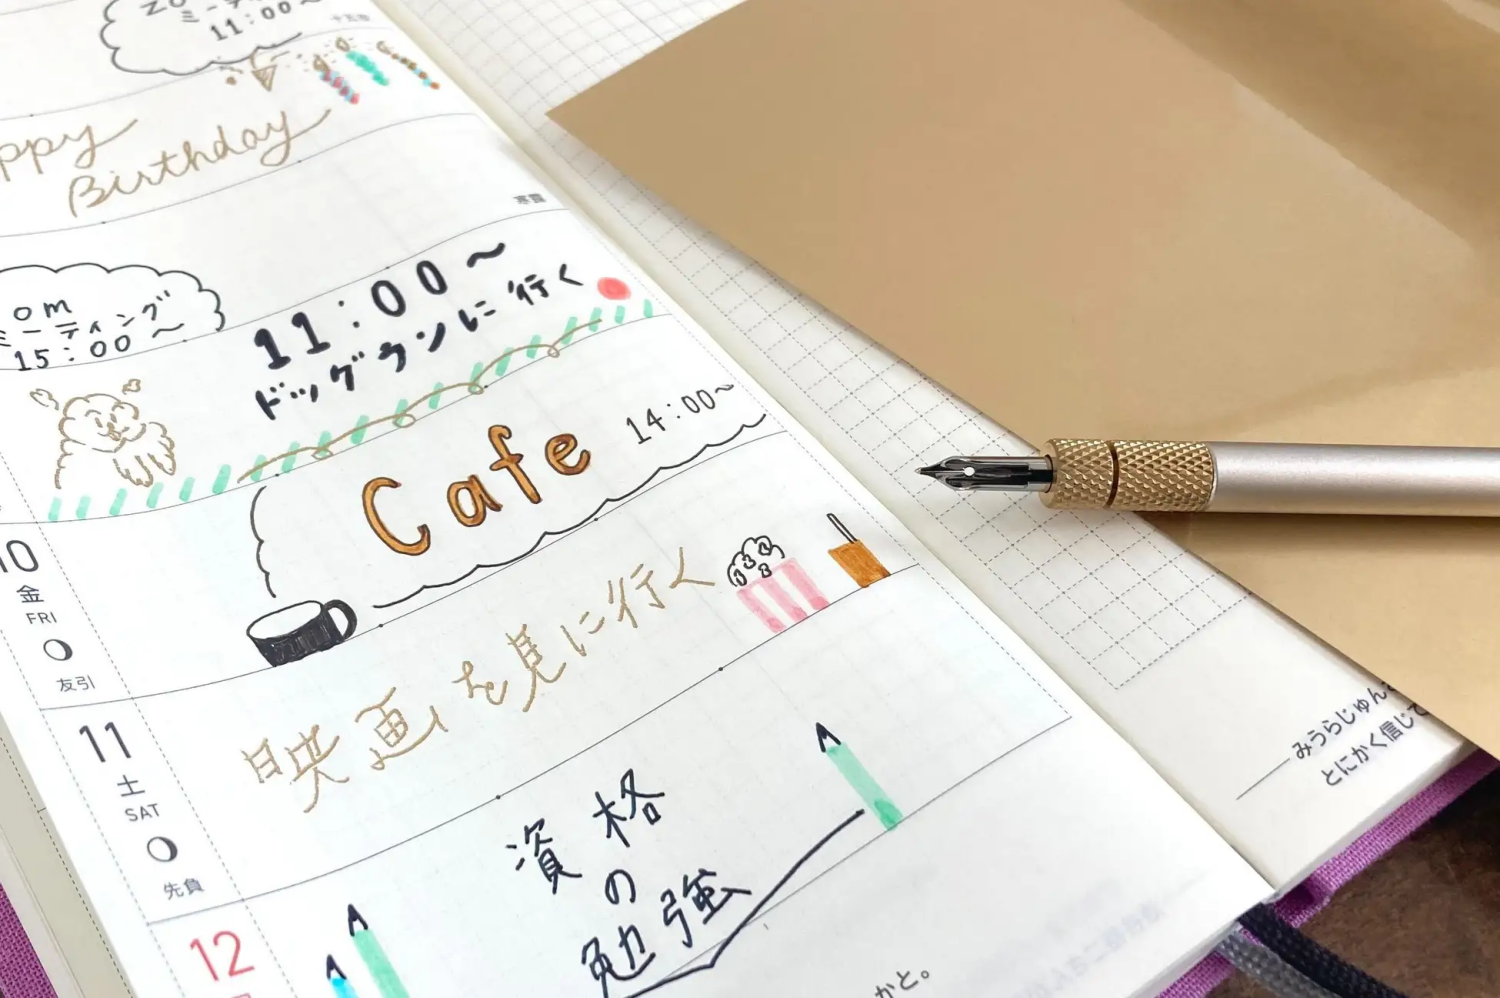 ミーティ
11:00~
ppy
Birthday
寒露
om
ミーティング
15:00~
11:00~
ドッグランに行く
Cafe
14:00~
10
金
FRI
友引
映画を見に行く
11
土
SAT
先負
資格
の
勉強
12
みうらじゅん
とにかく信じて
かと。